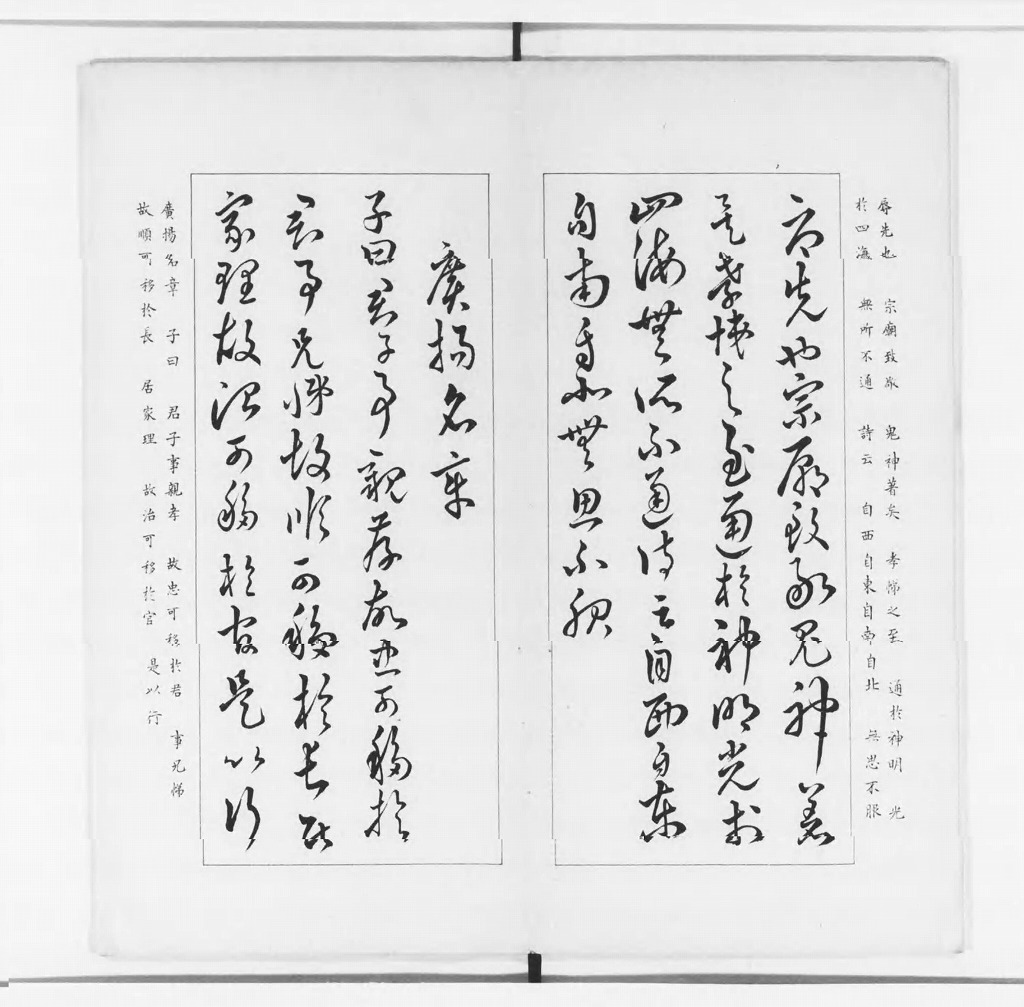 辱先也 宗廟致敬 鬼神著矣 孝悌之至 通於神明 光
於四海 無所不通 詩云 自西自東自南自北 無思不服
辱先也宗廟致敬鬼神著
矣孝悌之至通於神明光於
四海無所不通詩云自西自東
自南自北無思不服
廣揚名章
子曰君子事親孝故忠可移於
君事兄悌故順可移於長居
家理故治可移於官是以行
廣揚名章 子曰 君子事親孝 故忠可移於君 事兄悌
故順可移於長 居家理 故治可移於官 是以行